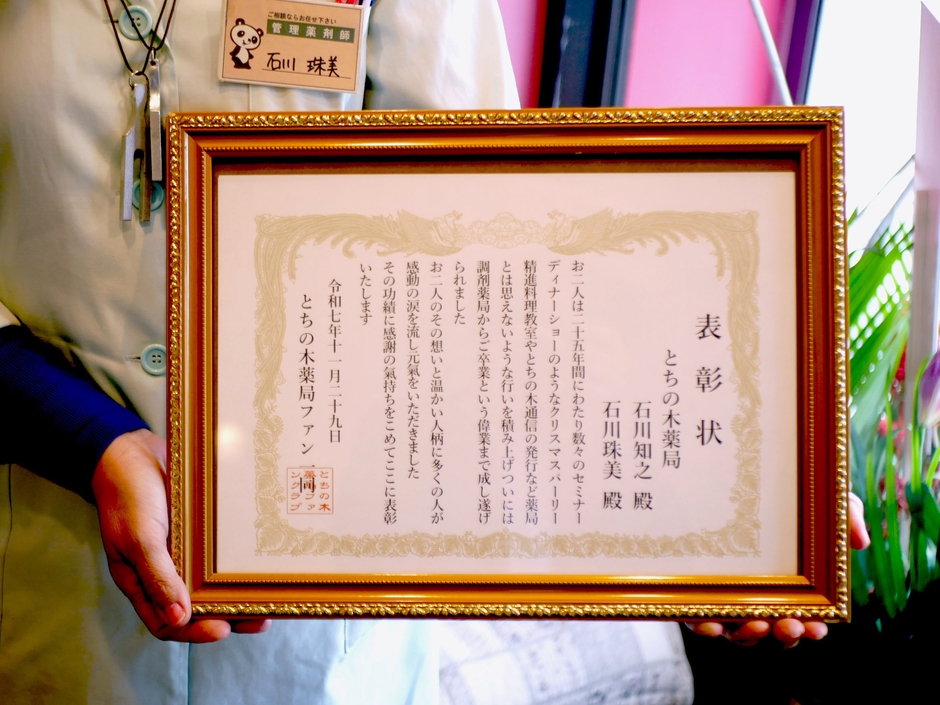 ご相談ならお任せ下さい
管理薬剤師
石川 珠美
表彰状
とちの木薬局
石川知之 殿
石川珠美 殿
お二人は二十五年間にわたり数々のセミナー
ディナーショーのようなクリスマスパーリー
精進料理教室やとちの木通信の発行など薬局
とは思えないような行いを積み上げついには
調剤薬局からご卒業という偉業まで成し遂げ
られました
お二人のその想いと温かい人柄に多くの人が
感動の涙を流し元氣をいただきました
その功績に感謝の氣持ちをこめてここに表彰
いたします
令和七年十一月二十九日
とちの木薬局ファン一同
とちの木
薬局ファ
ンクラブ